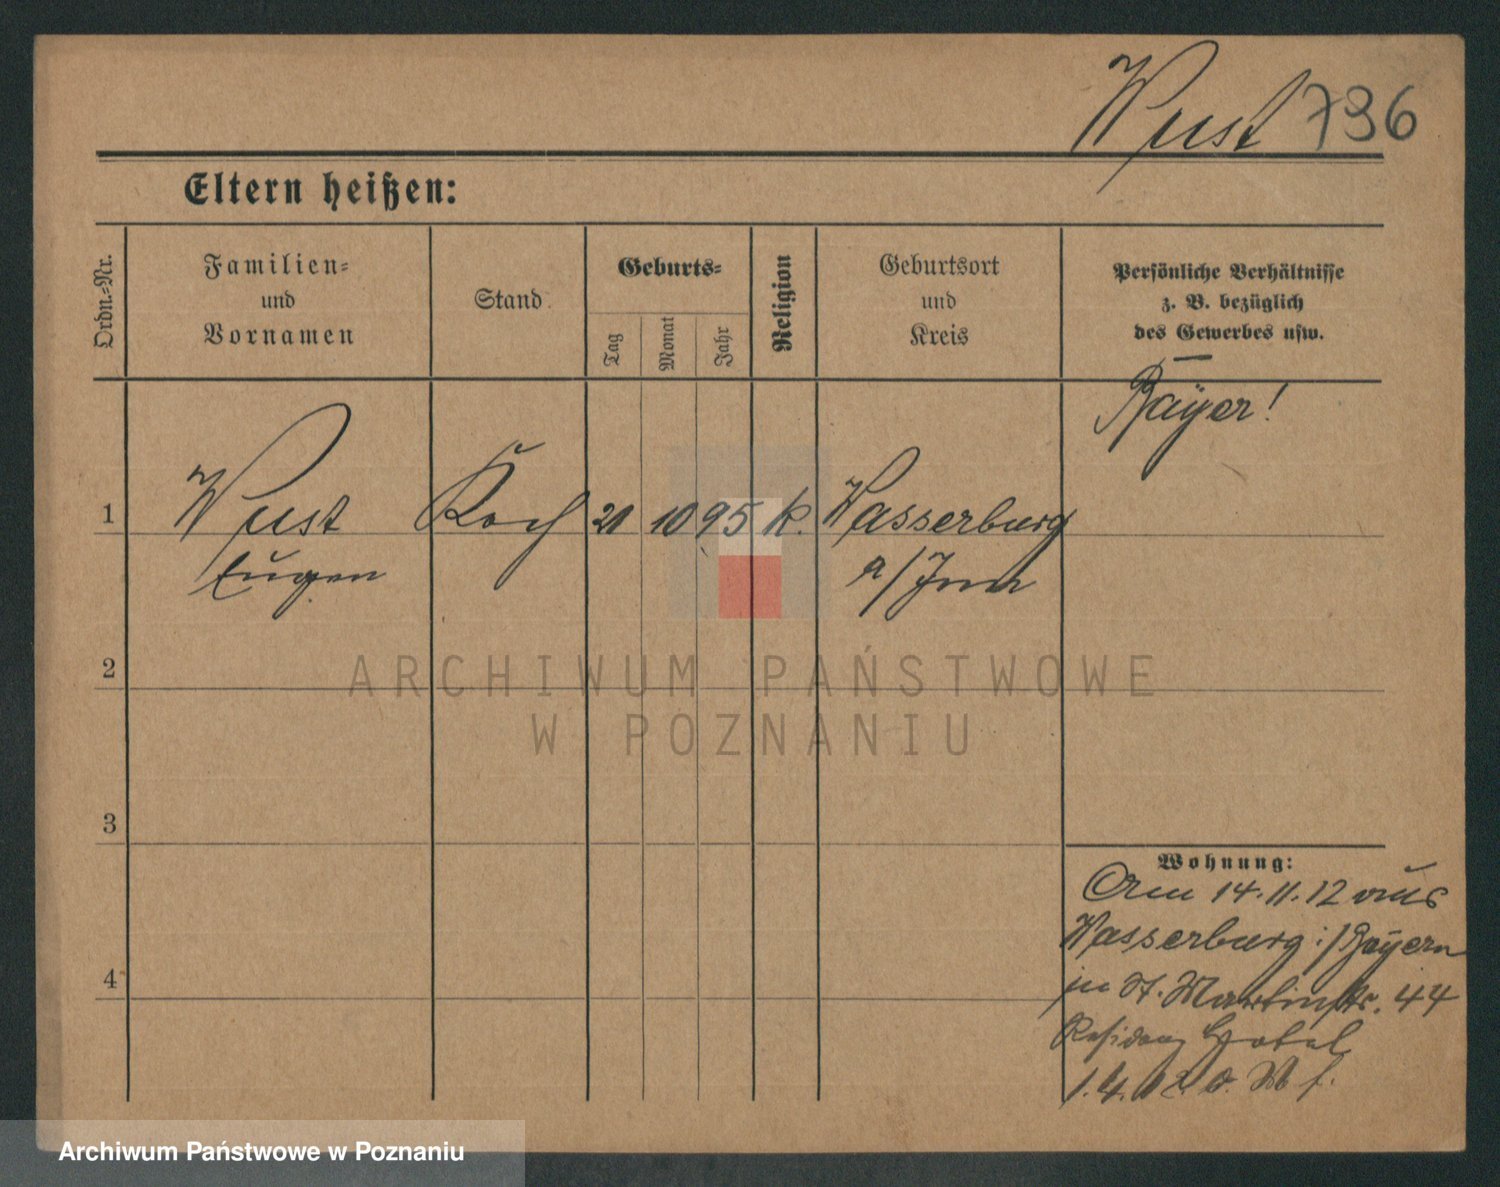 Wust 796
Eltern heißen:
Ordn.-Nr.
Familien-
und
Vornamen
Stand
Geburts-
Tag
Monat
Jahr
Religion
Geburtsort
und
Kreis
Persönliche Verhältnisse
z. B. bezüglich
des Gewerbes usw.
Bayer!
1 Wust Koch 21 10 95 k. Wasserburg
Eugen a/Inn
2
ARCHIWUM PAŃSTWOWE
W POZNANIU
3
Wohnung:
Am 14.11.12 aus
Wasserburg i/Bayern
in St. Martinstr. 44
4
Residenz Hotel
Archiwum Państwowe w Poznaniu